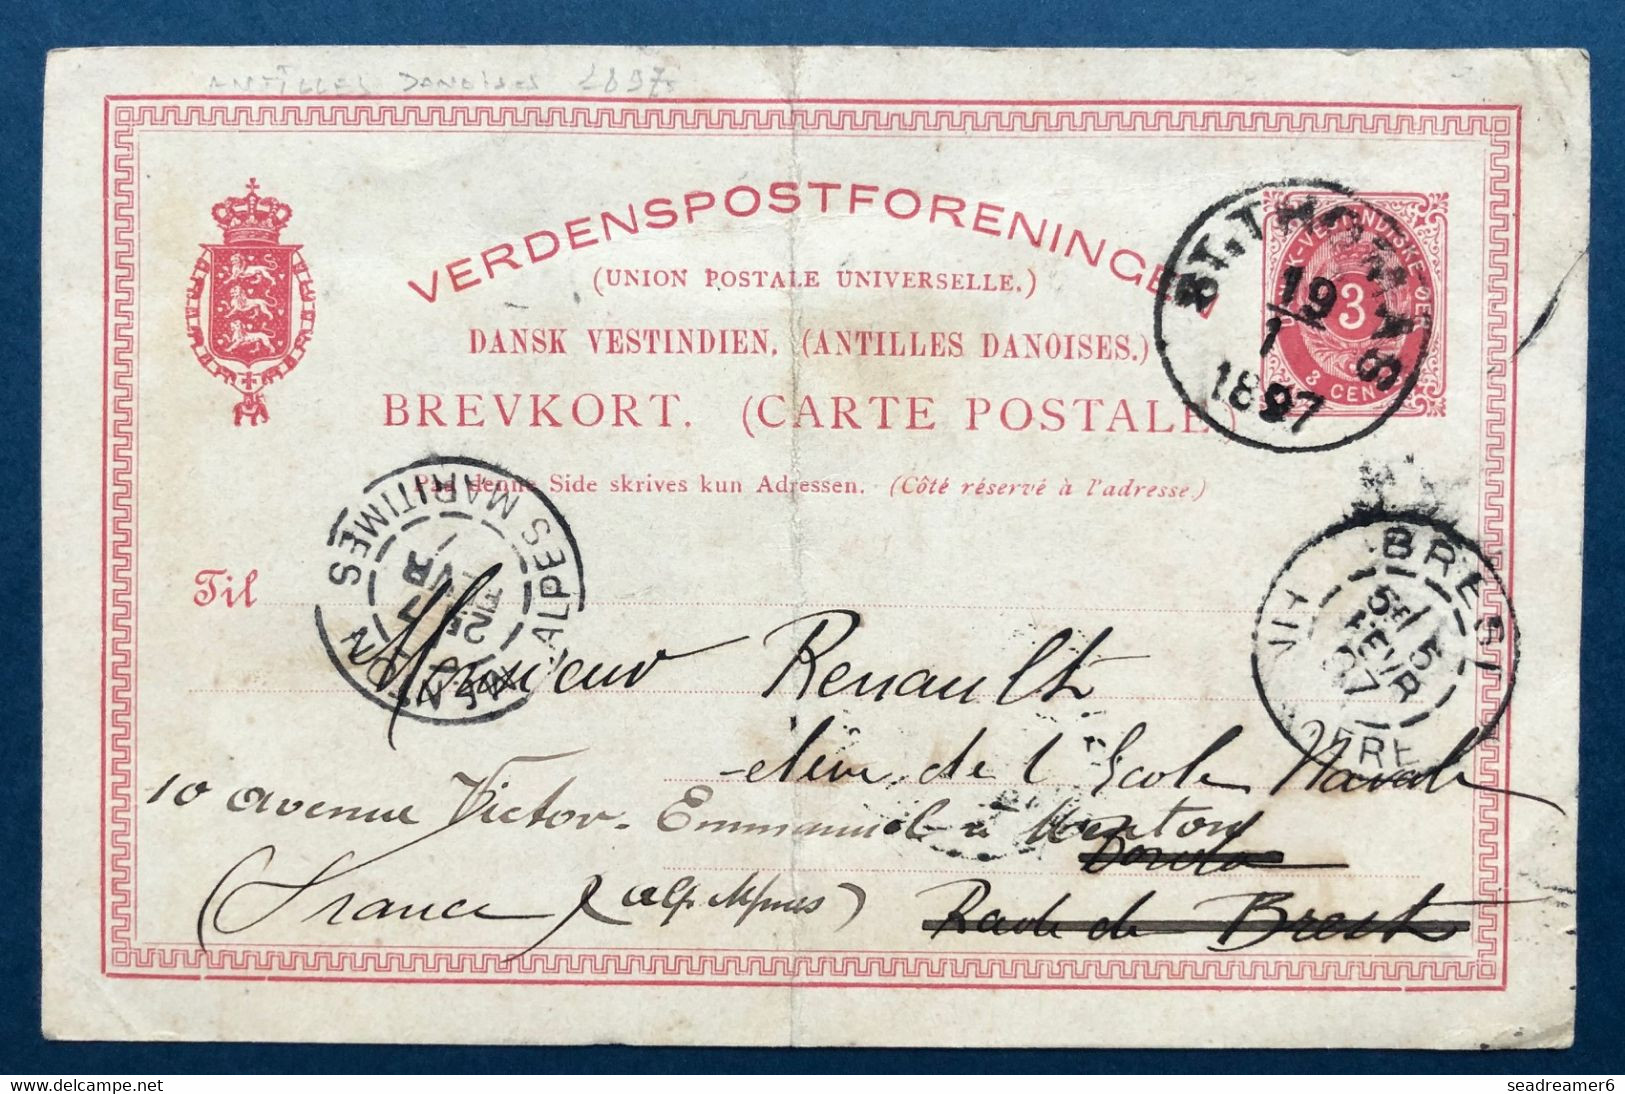 ANTILLES DANOISES 1897
VERDENSPOSTFORENINGEN
(UNION POSTALE UNIVERSELLE.)
DANSK VESTINDIEN. (ANTILLES DANOISES.)
BREVKORT. (CARTE POSTALE)
ST. THOMAS
19
1
1897
3
3 CENT
Paa denne Side skrives kun Adressen. (Côté réservé à l'adresse.)
ALPES MARITIMES
BREST
5E
5
FEVR
97
Til
Monsieur Renault
élève de l'Ecole Navale
10 avenue Victor-Emmanuel à Menton
Borda
(France) (alp. Mmes)
Rade de Brest
seadreamer6